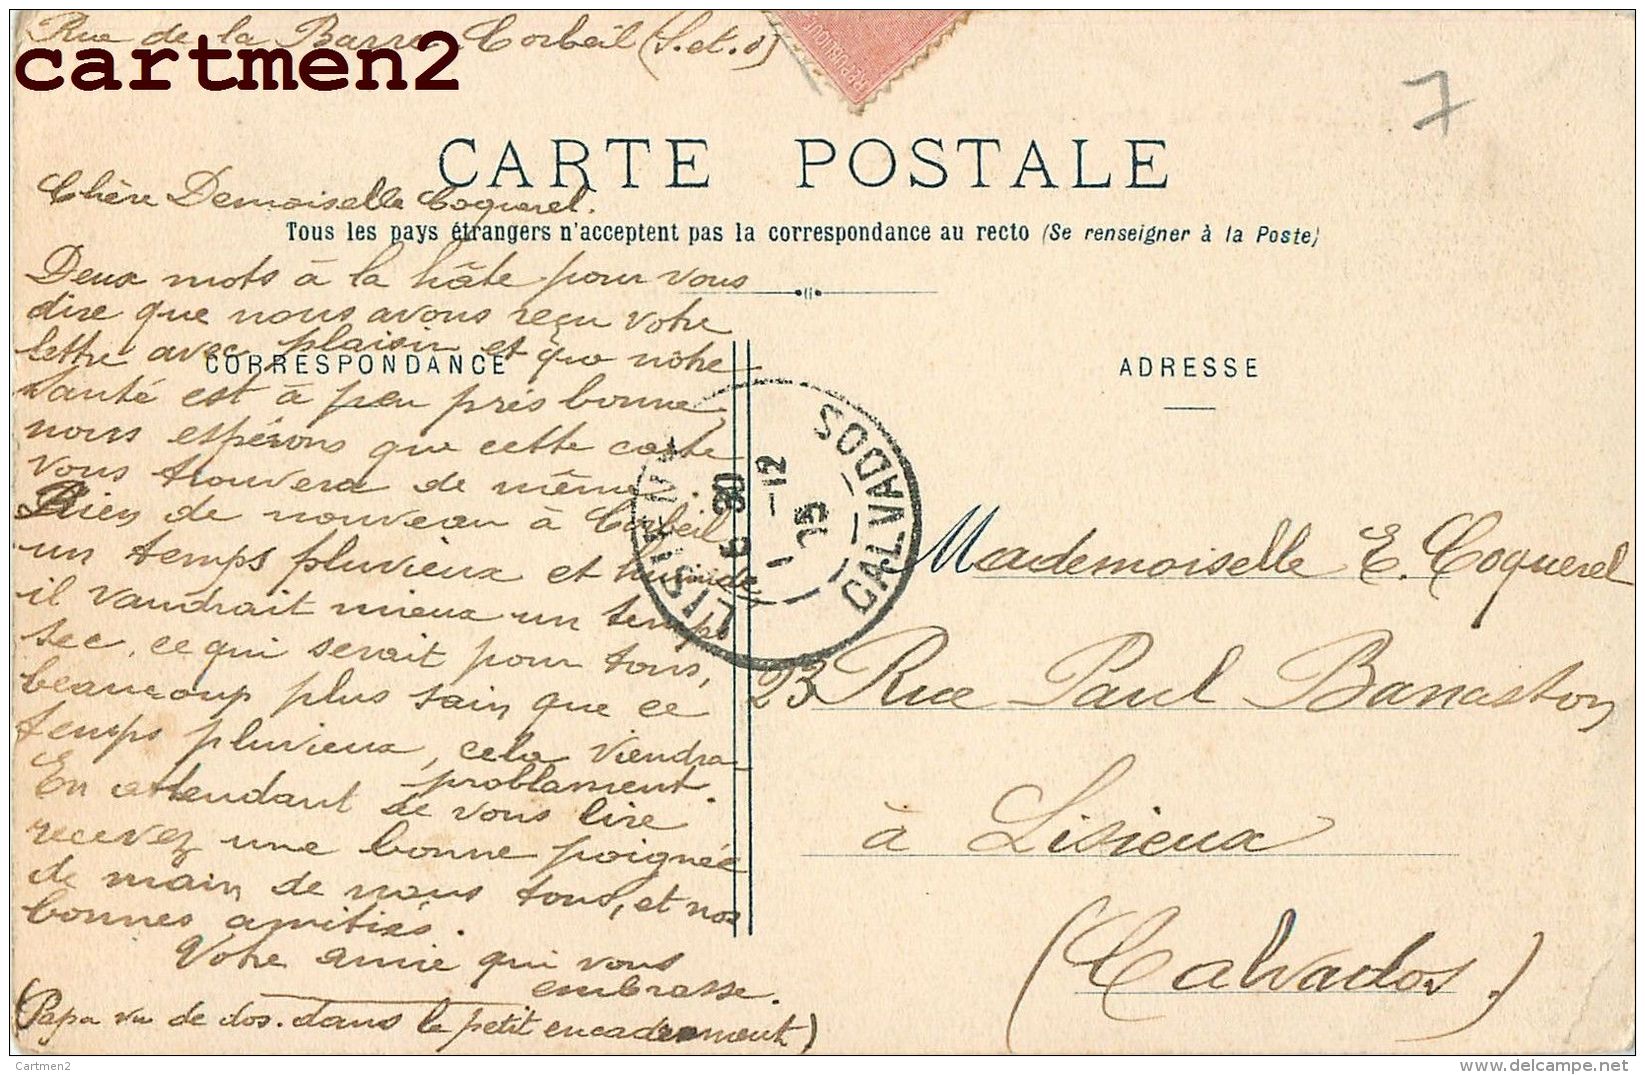 Rue de la Barre Corbeil (S.et.O)
cartmen2
REPUBLIQUE
7
CARTE POSTALE
Chère Demoiselle Coquerel.
Tous les pays étrangers n'acceptent pas la correspondance au recto (Se renseigner à la Poste)
Deux mots à la hâte pour vous
dire que nous avons reçu votre
lettre avec plaisir et que notre
CORRESPONDANCE
santé est à peu près bonne,
nous espérons que cette carte
vous trouvera de même.
Rien de nouveau à Corbeil
un temps pluvieux et humide
il vaudrait mieux un temps
sec, ce qui serait pour tous,
beaucoup plus sain que ce
temps pluvieux, cela viendra
problament.
En attendant de vous lire
recevez une bonne poignée
de main de nous tous, et nos
bonnes amitiés.
Votre amie qui vous
embrasse.
(Papa vu de dos. dans le petit encadrement)
ADRESSE
LISIEUX CALVADOS
Mademoiselle E. Coquerel
23 Rue Paul Banaston
à Lisieux
(Calvados.)
Cartmen2
www.delcampe.net